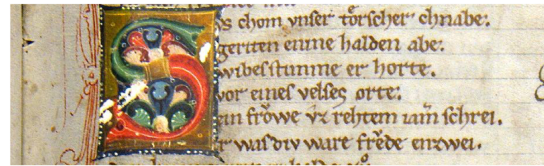 S
s chom vnser törscher chnabe.
geriten eine halden abe.
wibes stimme er horte.
vor eines velses orte.
ein frowe vz rehtem iamer schrei.
r was div ware frede enzwei.